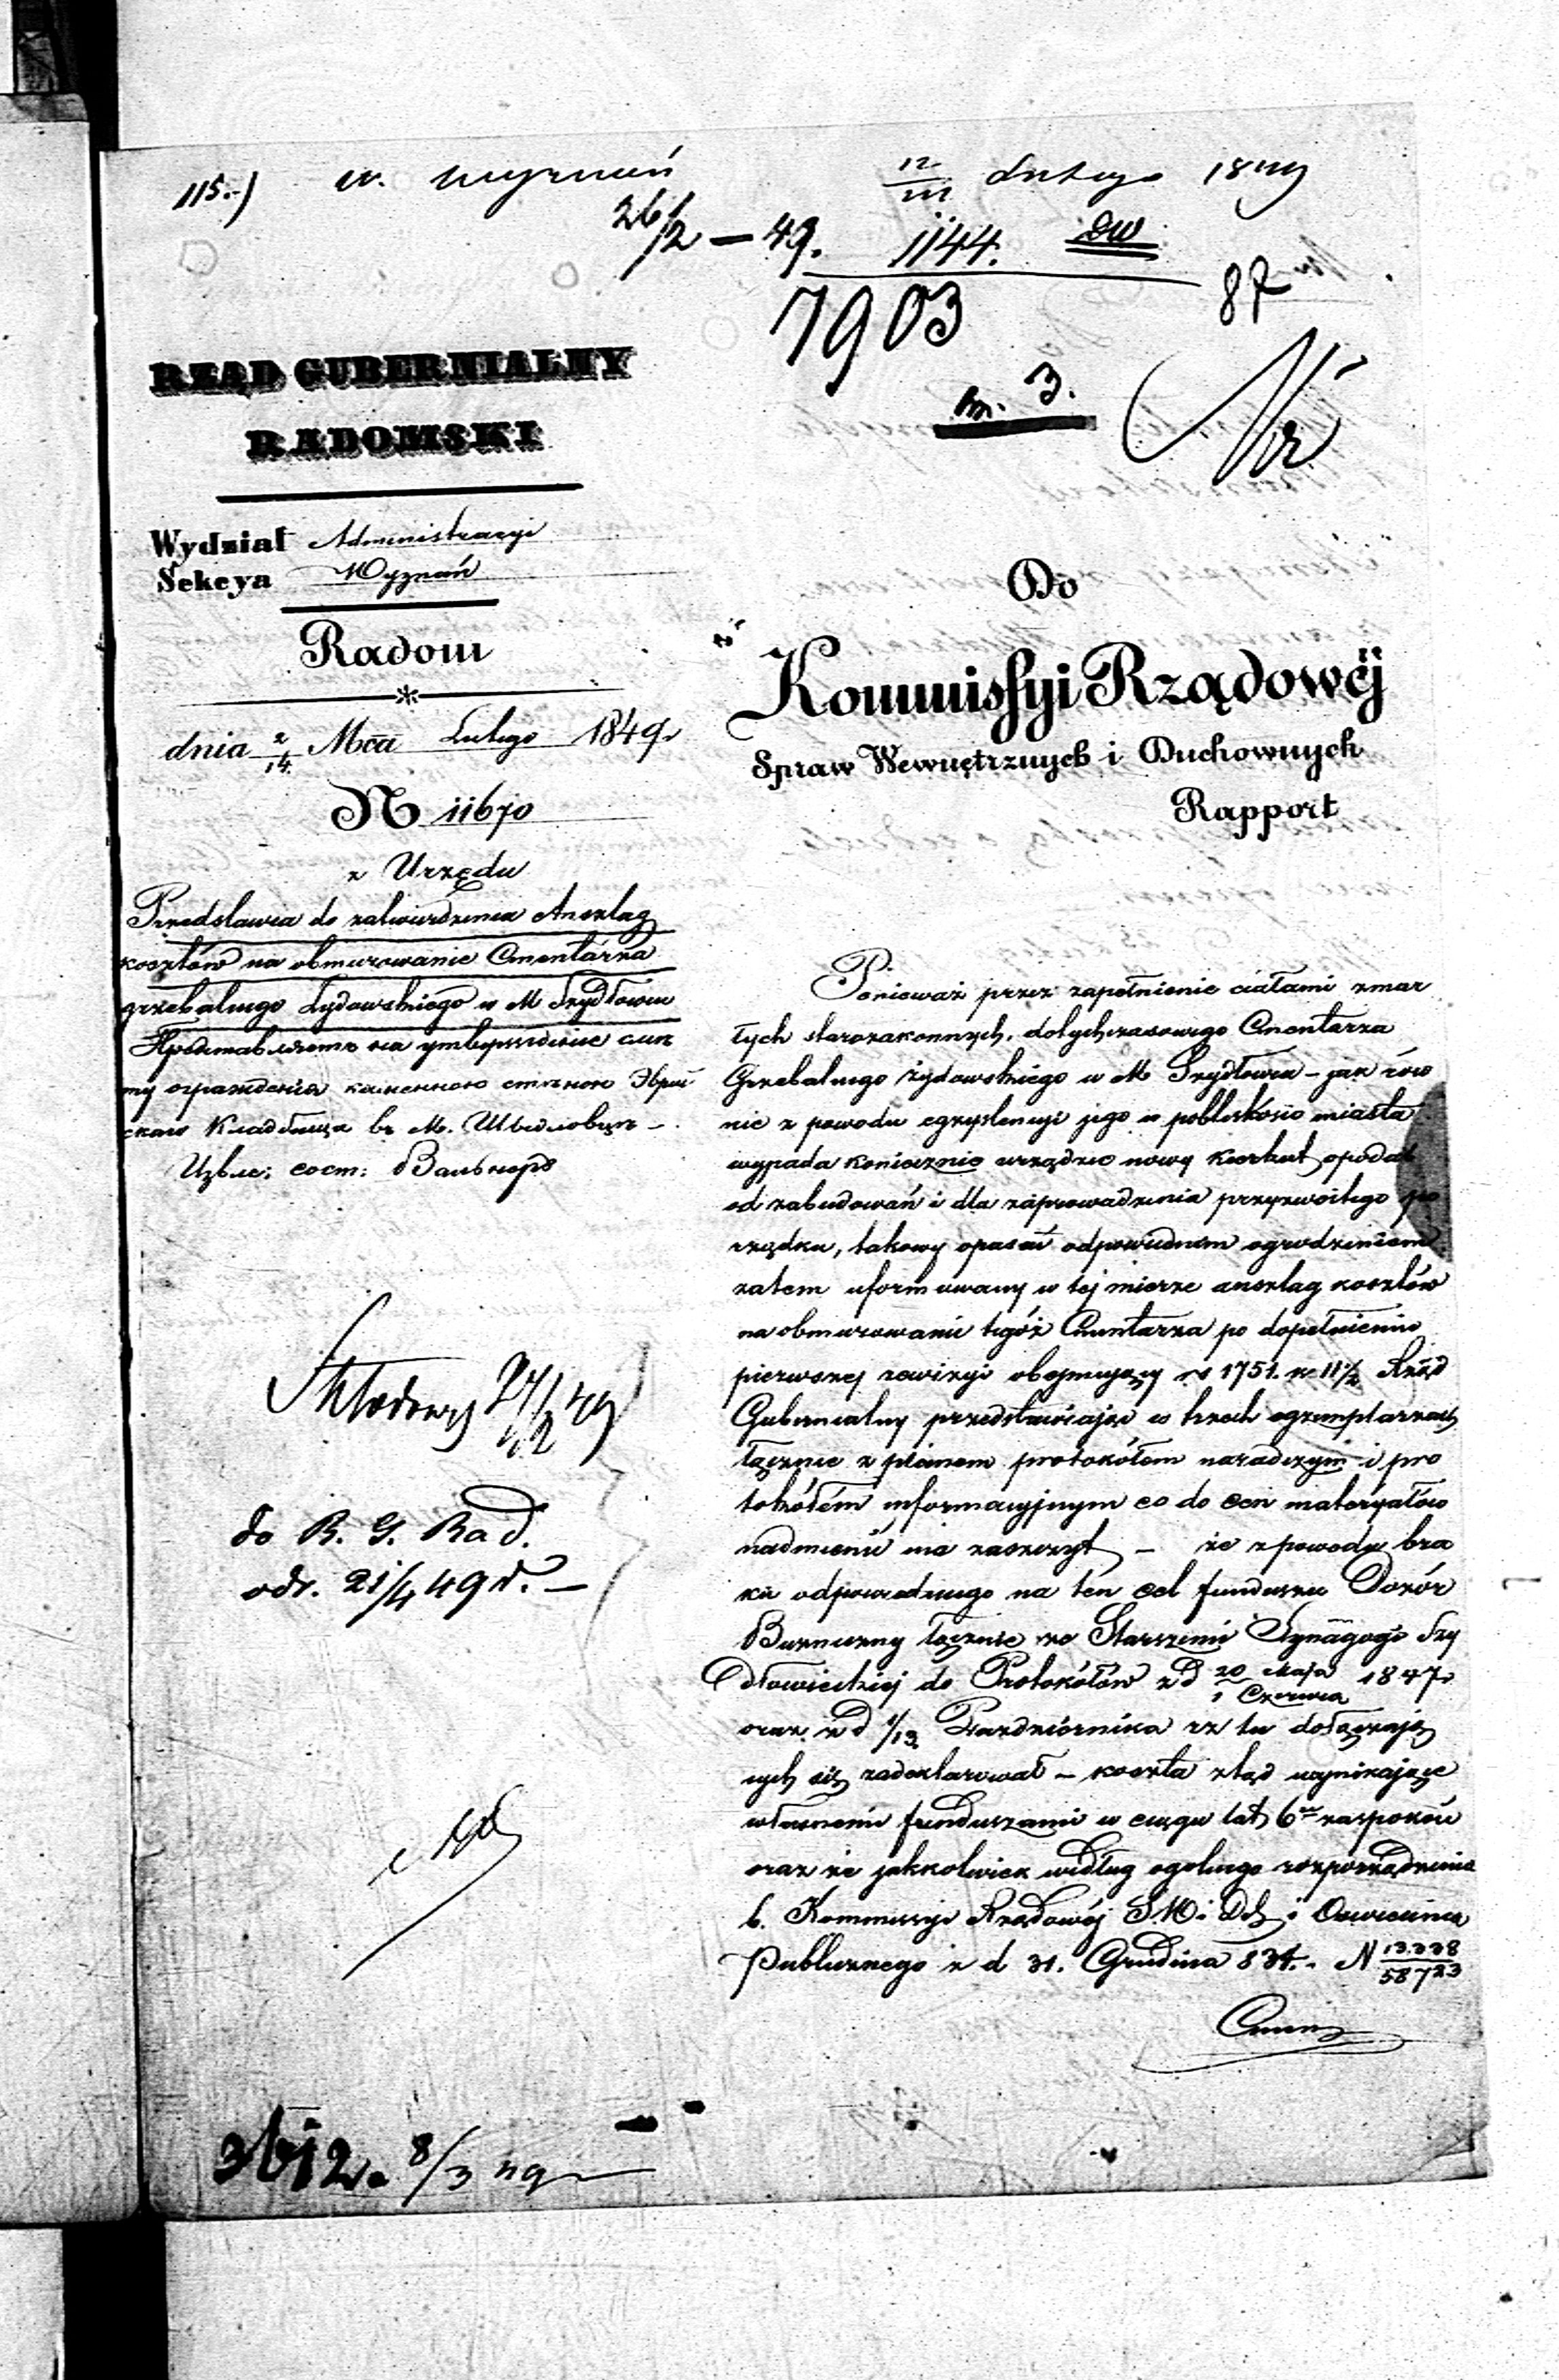 115.-)
w. wyznań
12/III Lutego 1849
26/2 — 49. 1144. DW
7903
87
m. 3.
Nr
RZĄD GUBERNIALNY
RADOMSKI
Wydział Administracyi
Sekcya Wyznań
Radom
dnia 2/14 Mca Lutego 1849r
N 11670
z Urzędu
Przedstawia do zatwierdzenia Anszlag
kosztów na obmurowanie Cmentarza
grzebalnego Żydowskiego w M Szydłowcu
Представляетъ на утвержденіе смѣ
ту огражденія каменною стѣною Еврей
скаго Кладбища въ М. Шидловцѣ –
До
Kommissyi Rządowéj
Spraw Wewnętrznych i Duchownych
Rapport
Ponieważ przez zapełnienie ciałami zmar
łych starozakonnych, dotychczasowego Cmentarza
Grzebalnego żydowskiego w M Szydłowcu – jak rów
nie z powodu egzystencyi jego w pobliskości miasta
wypada koniecznie urządzić nowy kierkut opodal
od zabudowań i dla zaprowadzenia przyzwoitego po
rządku, takowy opasać odpowiedniem ogrodzeniem
zatem uformowany w tej mierze anszlag kosztów
na obmurowanie tegóż Cmentarza po dopełnieniu
pierwszej rewizyi obejmujący rs 1751. k 11½ Rząd
Gubernialny przedstawiając w trzech egzemplarzach
łącznie z planem protokółem naradczym i pro
tokółem informacyjnym co do cen materyałów
nadmienić ma zaszczyt – że z powodu bra
ku odpowiedniego na ten cel funduszu Dozór
Bużniczny łącznie ze Starszemi Synagogi Szy
dłowieckiej do Protokółów z d 20 Maja/1 Czerwca 1847r
oraz z d 1/13 Października rz tu dołączają
cych się zadeklarował – koszta ztąd wynikające
własnemi funduszami w ciągu lat 6ciu zaspokoić
oraz że jakkolwiek według ogólnego rozporządzenia
b. Kommissyi Rządowéj S.W. i Dch i Oświecenia
Publicznego z d 31. Grudnia 834. N 13338/58723
Składowy 27/2 49
do R. G. Rad.
odr. 21/4 49 r. —
3612. 8/3 49